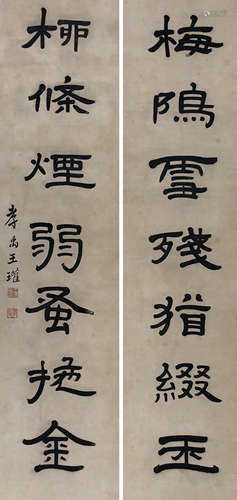 梅隖雪殘猶綴玉
柳條煙弱蚤拖金
孝禹王瓘